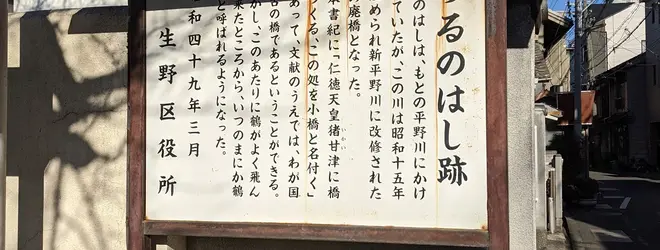 るのはし跡
のはしは、もとの平野川にかけ
ていたが、この川は昭和十五年
められ新平野川に改修された
廃橋となった。
本書紀に「仁徳天皇猪甘津に橋
いかい
つくる、この処を小橋と名付く」
あって、文献のうえでは、わが国
の橋であるということができる。
かし、このあたりに鶴がよく飛ん
来たところから、いつのまにか鶴
と呼ばれるようになった。
和四十九年三月
生野区役所